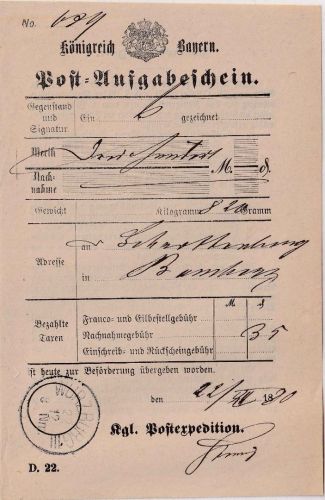 No. 689
Königreich Bayern.
Post-Aufgabeschein.
Gegenstand und Signatur
Ein gezeichnet
Werth Drei hundert M. ₰.
Nachnahme
Gewicht Kilogramm 820 Gramm
Adresse
an
in Bamberg
M. ₰
Bezahlte Taxen
Franco- und Eilbestellgebühr
Nachnahmegebühr 35
Einschreib- und Rückscheingebühr
ist heute zur Beförderung übergeben worden.
den 22/ 1880
Kgl. Postexpedition.
D. 22.